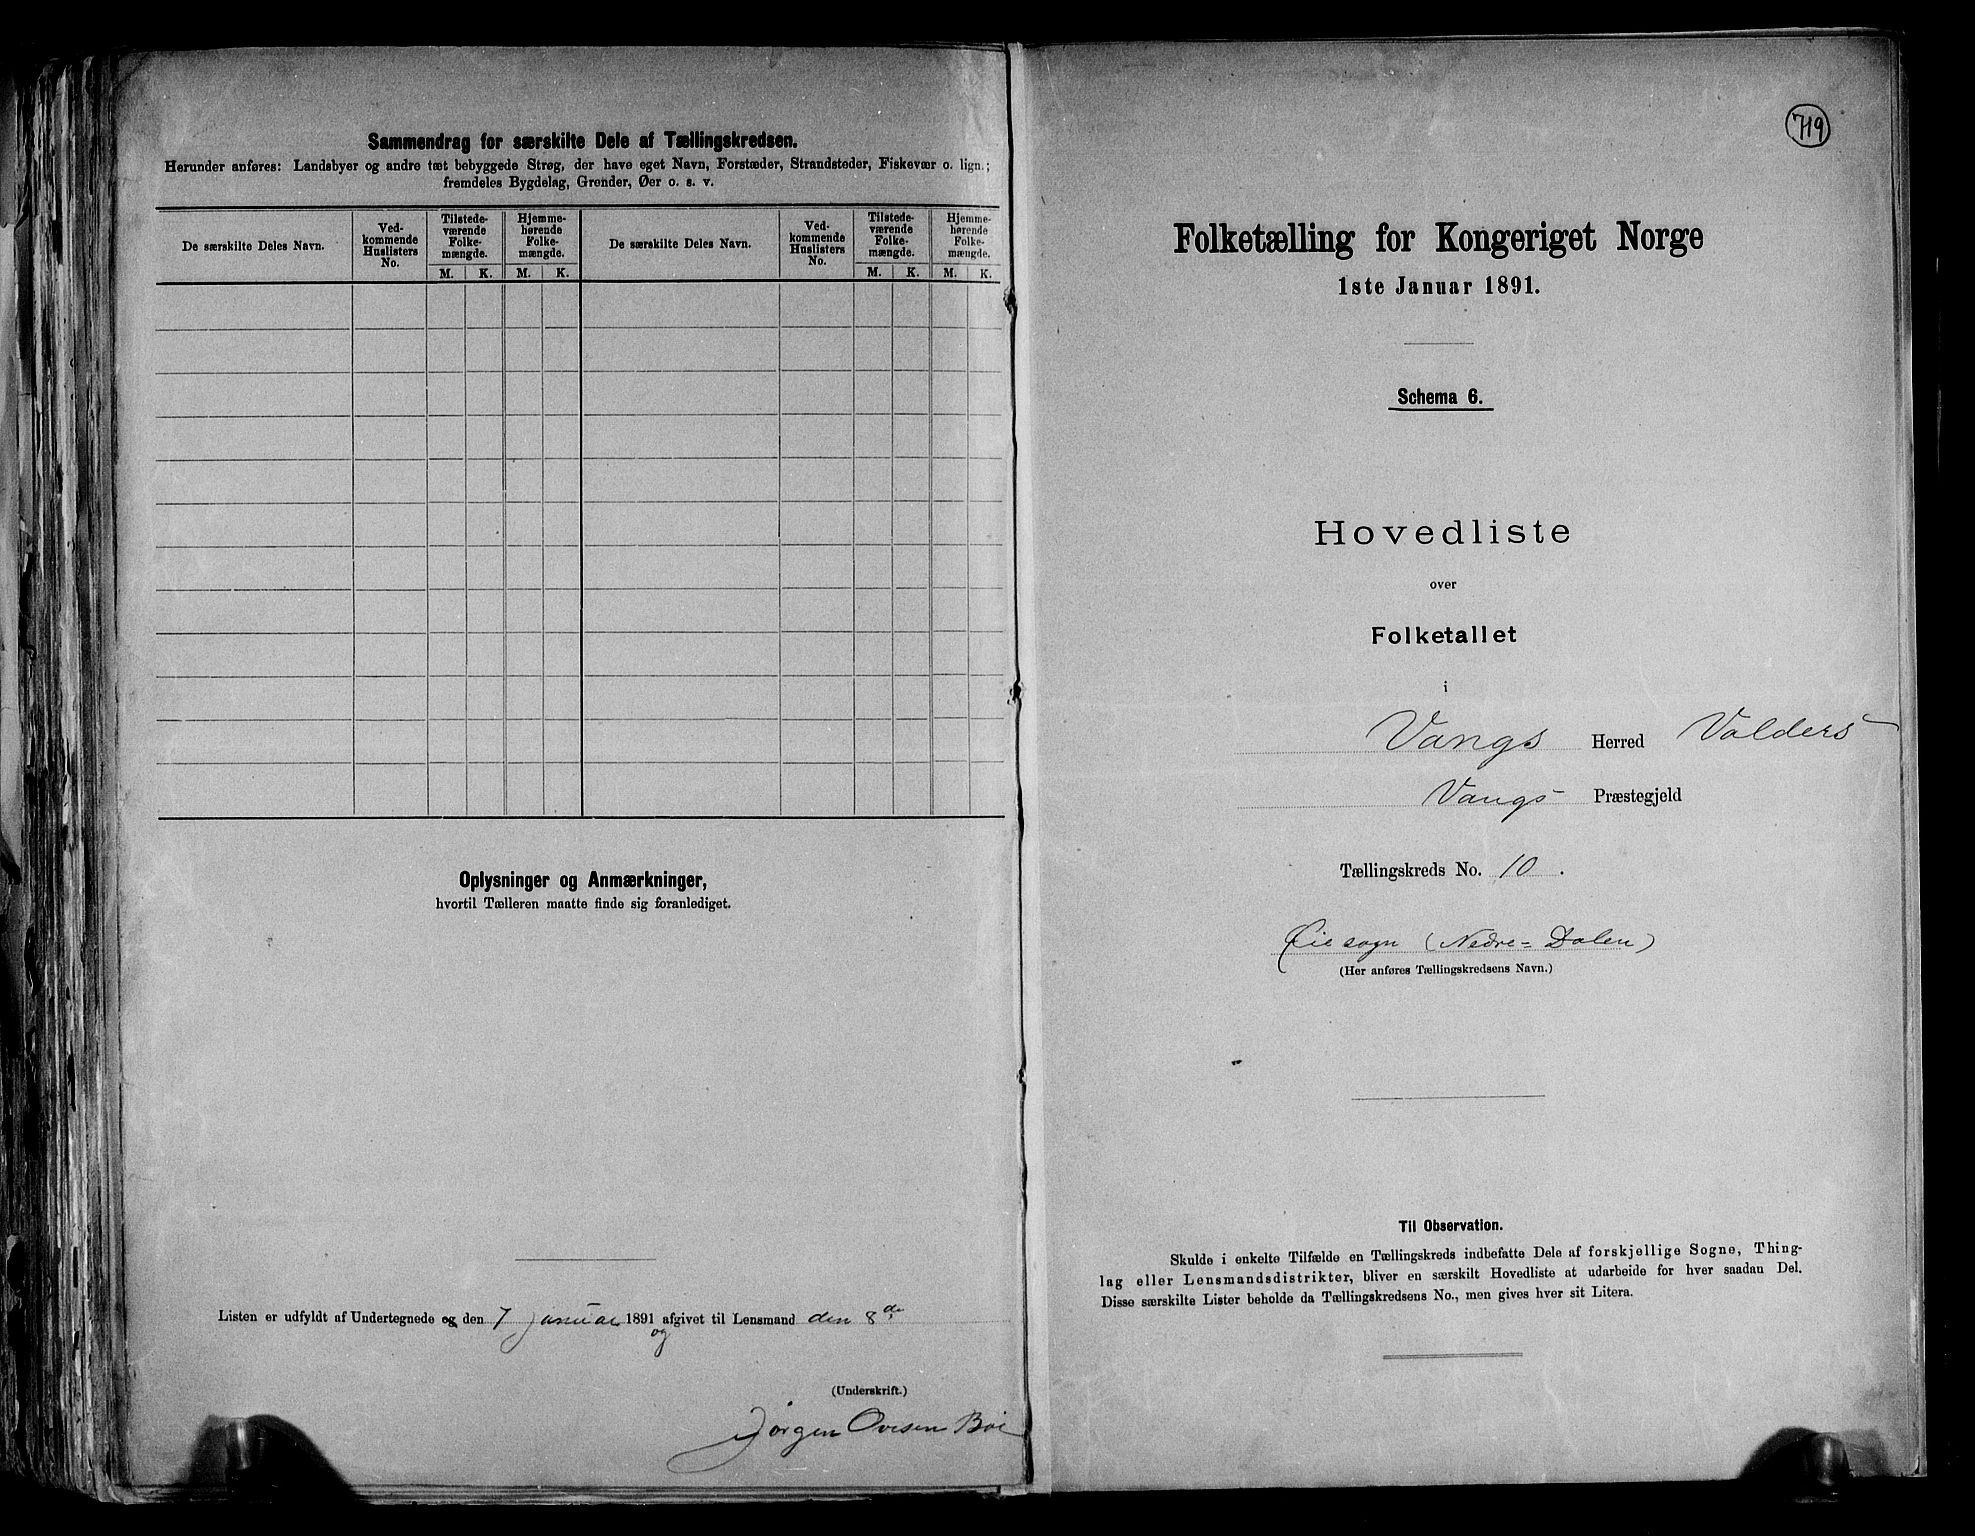 Sammendrag for særskilte Dele af Tællingskredsen.
Herunder anføres: Landsbyer og andre tæt bebyggede Strøg, der have eget Navn, Forstæder, Strandsteder, Fiskevær o. lign.;
fremdeles Bygdelag, Grender, Øer o. s. v.
De særskilte Deles Navn.
Ved-
kommende
Huslisters
No.
Tilstede-
værende
Folke-
mængde.
M. K.
Hjemme-
hørende
Folke-
mængde.
M. K.
De særskilte Deles Navn.
Ved-
kommende
Huslisters
No.
Tilstede-
værende
Folke-
mængde.
M. K.
Hjemme-
hørende
Folke-
mængde.
M. K.
Oplysninger og Anmærkninger,
hvortil Tælleren maatte finde sig foranlediget.
Listen er udfyldt af Undertegnede og den 7 Januar 1891 afgivet til Lensmand den 8de
og
(Underskrift.)
Jørgen Ovesen Bøe
719
Folketælling for Kongeriget Norge
1ste Januar 1891.
Schema 6.
Hovedliste
over
Folketallet
i
Vangs Herred Valders
Vangs Præstegjeld
Tællingskreds No. 10.
Øie sogn (Nedre=Dalen)
(Her anføres Tællingskredsens Navn.)
Til Observation.
Skulde i enkelte Tilfælde en Tællingskreds indbefatte Dele af forskjellige Sogne, Thing-
lag eller Lensmandsdistrikter, bliver en særskilt Hovedliste at udarbeide for hver saadan Del.
Disse særskilte Lister beholde da Tællingskredsens No., men gives hver sit Litera.